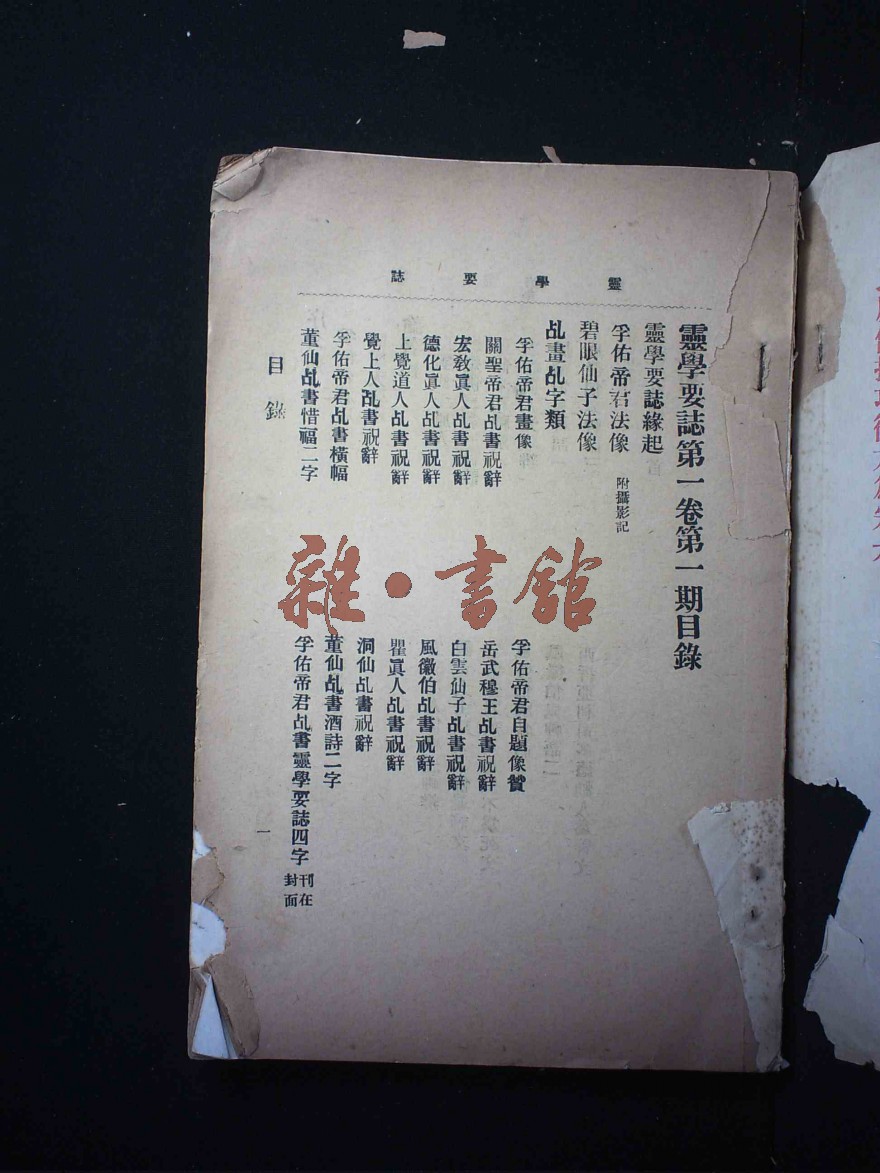 靈學要誌
靈學要誌第一卷第一期目錄
靈學要誌緣起
孚佑帝君法像 附攝影記
碧眼仙子法像
乩畫乩字類
孚佑帝君畫像
孚佑帝君自題像贊
關聖帝君乩書祝辭
岳武穆王乩書祝辭
宏敎眞人乩書祝辭
白雲仙子乩書祝辭
德化眞人乩書祝辭
風徽伯乩書祝辭
上覺道人乩書祝辭
瞿眞人乩書祝辭
覺上人乩書祝辭
洞仙乩書祝辭
孚佑帝君乩書橫幅
董仙乩書酒詩二字
董仙乩書惜福二字
孚佑帝君乩書靈學要誌四字 刊在封面
目錄
一
雜·書館